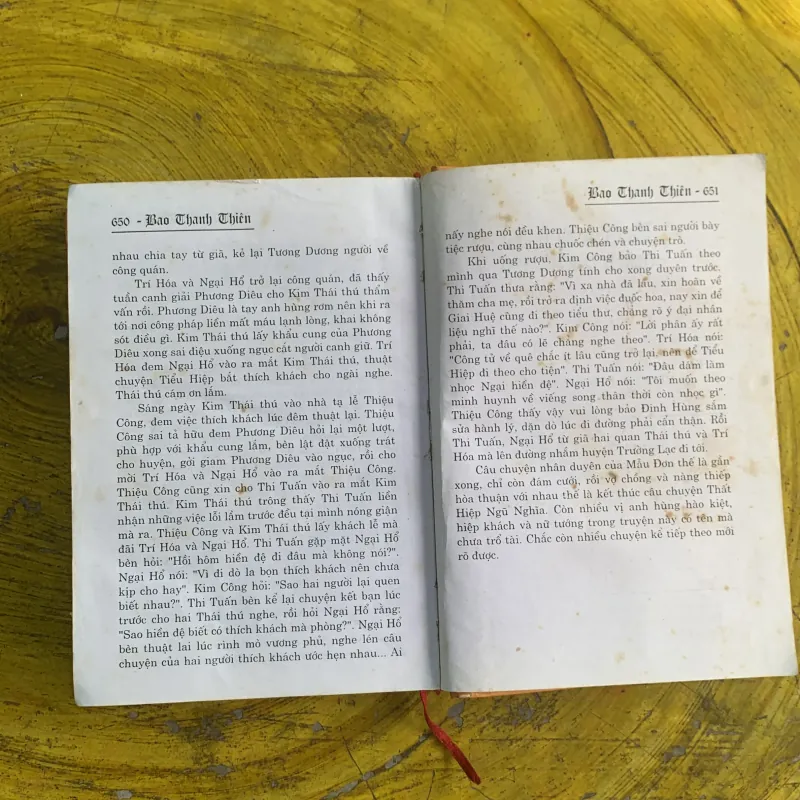 650 - Bao Thanh Thiên
nhau chia tay từ giã, kẻ lại Tương Dương người về
công quán.
Trí Hóa và Ngại Hổ trở lại công quán, đã thấy
tuần canh giải Phương Diêu cho Kim Thái thú thẩm
vấn rồi. Phương Diêu là tay anh hùng rơm nên khi ra
tới nơi công pháp liền mất máu lạnh lòng, khai không
sót điều gì. Kim Thái thú lấy khẩu cung của Phương
Diêu xong sai điệu xuống ngục cắt người canh giữ. Trí
Hóa đem Ngại Hổ vào ra mắt Kim Thái thú, thuật
chuyện Tiểu Hiệp bắt thích khách cho ngài nghe.
Thái thú cám ơn lắm.
Sáng ngày Kim Thái thú vào nhà tạ lễ Thiệu
Công, đem việc thích khách lúc đêm thuật lại. Thiệu
Công sai tả hữu đem Phương Diêu hỏi lại một lượt,
phù hợp với khẩu cung lắm, bèn lật đật xuống trát
cho huyện, gởi giam Phương Diêu vào ngục, rồi cho
mời Trí Hóa và Ngại Hổ vào ra mắt Thiệu Công.
Thiệu Công cũng xin cho Thi Tuấn vào ra mắt Kim
Thái thú. Kim Thái thú trông thấy Thi Tuấn liền
nhận những việc lỗi lầm trước đều tại mình nóng giận
mà ra. Thiệu Công và Kim Thái thú lấy khách lễ mà
đãi Trí Hóa và Ngại Hổ. Thi Tuấn gặp mặt Ngại Hổ
bèn hỏi: "Hồi hôm hiền đệ đi đâu mà không nói?".
Ngại Hổ nói: "Vì đi dò la bọn thích khách nên chưa
kịp cho hay". Kim Công hỏi: "Sao hai người lại quen
biết nhau?". Thi Tuấn bèn kể lại chuyện kết bạn lúc
trước cho hai Thái thú nghe, rồi hỏi Ngại Hổ rằng:
"Sao hiền đệ biết có thích khách mà phòng?". Ngại Hổ
bèn thuật lai lúc rình mò vương phủ, nghe lén câu
chuyện của hai người thích khách ước hẹn nhau... Ai
Bao Thanh Thiên - 651
nấy nghe nói đều khen. Thiệu Công bèn sai người bày
tiệc rượu, cùng nhau chuốc chén và chuyện trò.
Khi uống rượu, Kim Công bảo Thi Tuấn theo
mình qua Tương Dương tính cho xong duyên trước.
Thi Tuấn thưa rằng: "Vì xa nhà đã lâu, xin hoãn về
thăm cha mẹ, rồi trở ra định việc đuốc hoa, nay xin để
Giai Huệ cũng đi theo tiểu thư, chẳng rõ ý đại nhân
liệu nghĩ thế nào?". Kim Công nói: "Lời phân ấy rất
phải, ta đâu có lẽ chẳng nghe theo". Trí Hóa nói:
"Công tử về quê chắc ít lâu cũng trở lại, nên để Tiểu
Hiệp đi theo cho tiện". Thi Tuấn nói: "Đâu dám làm
nhọc Ngại hiền đệ". Ngại Hổ nói: "Tôi muốn theo
minh huynh về viếng song thân thời còn nhọc gì".
Thiệu Công thấy vậy vui lòng bảo Đinh Hùng sắm
sửa hành lý, dặn dò lúc đi đường phải cẩn thận. Rồi
Thi Tuấn, Ngại Hổ từ giã hai quan Thái thú và Trí
Hóa mà lên đường nhắm huyện Trường Lạc đi tới.
Câu chuyện nhân duyên của Mẫu Đơn thế là gần
xong, chỉ còn đám cưới, rồi vợ chồng và nàng thiếp
hòa thuận với nhau thế là kết thúc câu chuyện Thất
Hiệp Ngũ Nghĩa. Còn nhiều vị anh hùng hào kiệt,
hiệp khách và nữ tướng trong truyện này có tên mà
chưa trổ tài. Chắc còn nhiều chuyện kể tiếp theo mới
rõ được.